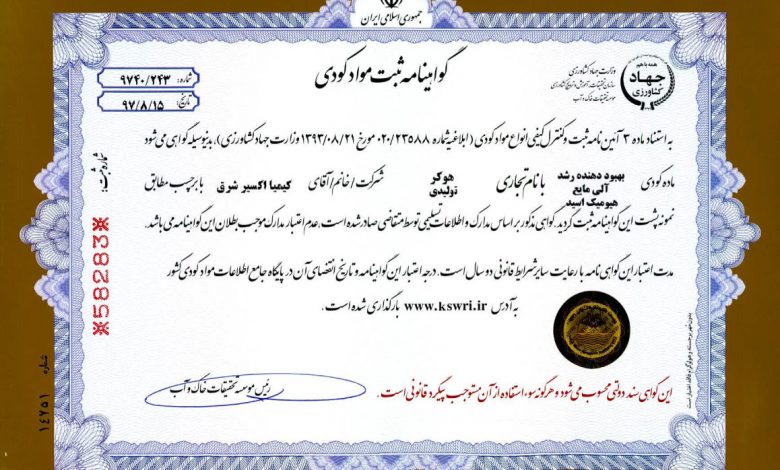 جمهوری اسلامی ایران
همه با هم
جهاد
کشاورزی
وزارت جهاد کشاورزی
سازمان تحقیقات، آموزش و ترویج کشاورزی
موسسه تحقیقات خاک و آب
گواهینامه ثبت مواد کودی
شماره: ۹۷۴۰/۲۴۳
تاریخ: ۹۷/۸/۱۵
به استناد ماده ۳ آئین نامه ثبت و کنترل کیفی انواع مواد کودی (ابلاغیه شماره ۰۲۰/۲۳۵۸۸ مورخ ۱۳۹۳/۰۸/۲۱ وزارت جهاد کشاورزی)، بدینوسیله گواهی می شود
ماده کودی بهبود دهنده رشد آلی مایع هیومیک اسید با نام تجاری هوگر تولیدی شرکت/خانم/آقای کیمیا اکسیر شرق با برچسب مطابق
نمونه پشت این گواهینامه ثبت گردید. گواهی مذکور بر اساس مدارک و اطلاعات تسلیمی توسط متقاضی صادر شده است. عدم اعتبار مدارک موجب بطلان این گواهینامه می باشد.
مدت اعتبار این گواهی نامه با رعایت سایر شرایط قانونی دو سال است. درجه اعتبار این گواهینامه و تاریخ انقضای آن در پایگاه جامع اطلاعات مواد کودی کشور
به آدرس www.kswri.ir بارگذاری شده است.
رئیس موسسه تحقیقات خاک و آب
این گواهی سند دولتی محسوب می شود و هرگونه سوء استفاده از آن مستوجب پیگرد قانونی است.
شماره ثبت:
※58283※
شماره ۱٤٧٥١
بدون مهر برجسته و هولوگرام فاقد اعتبار است